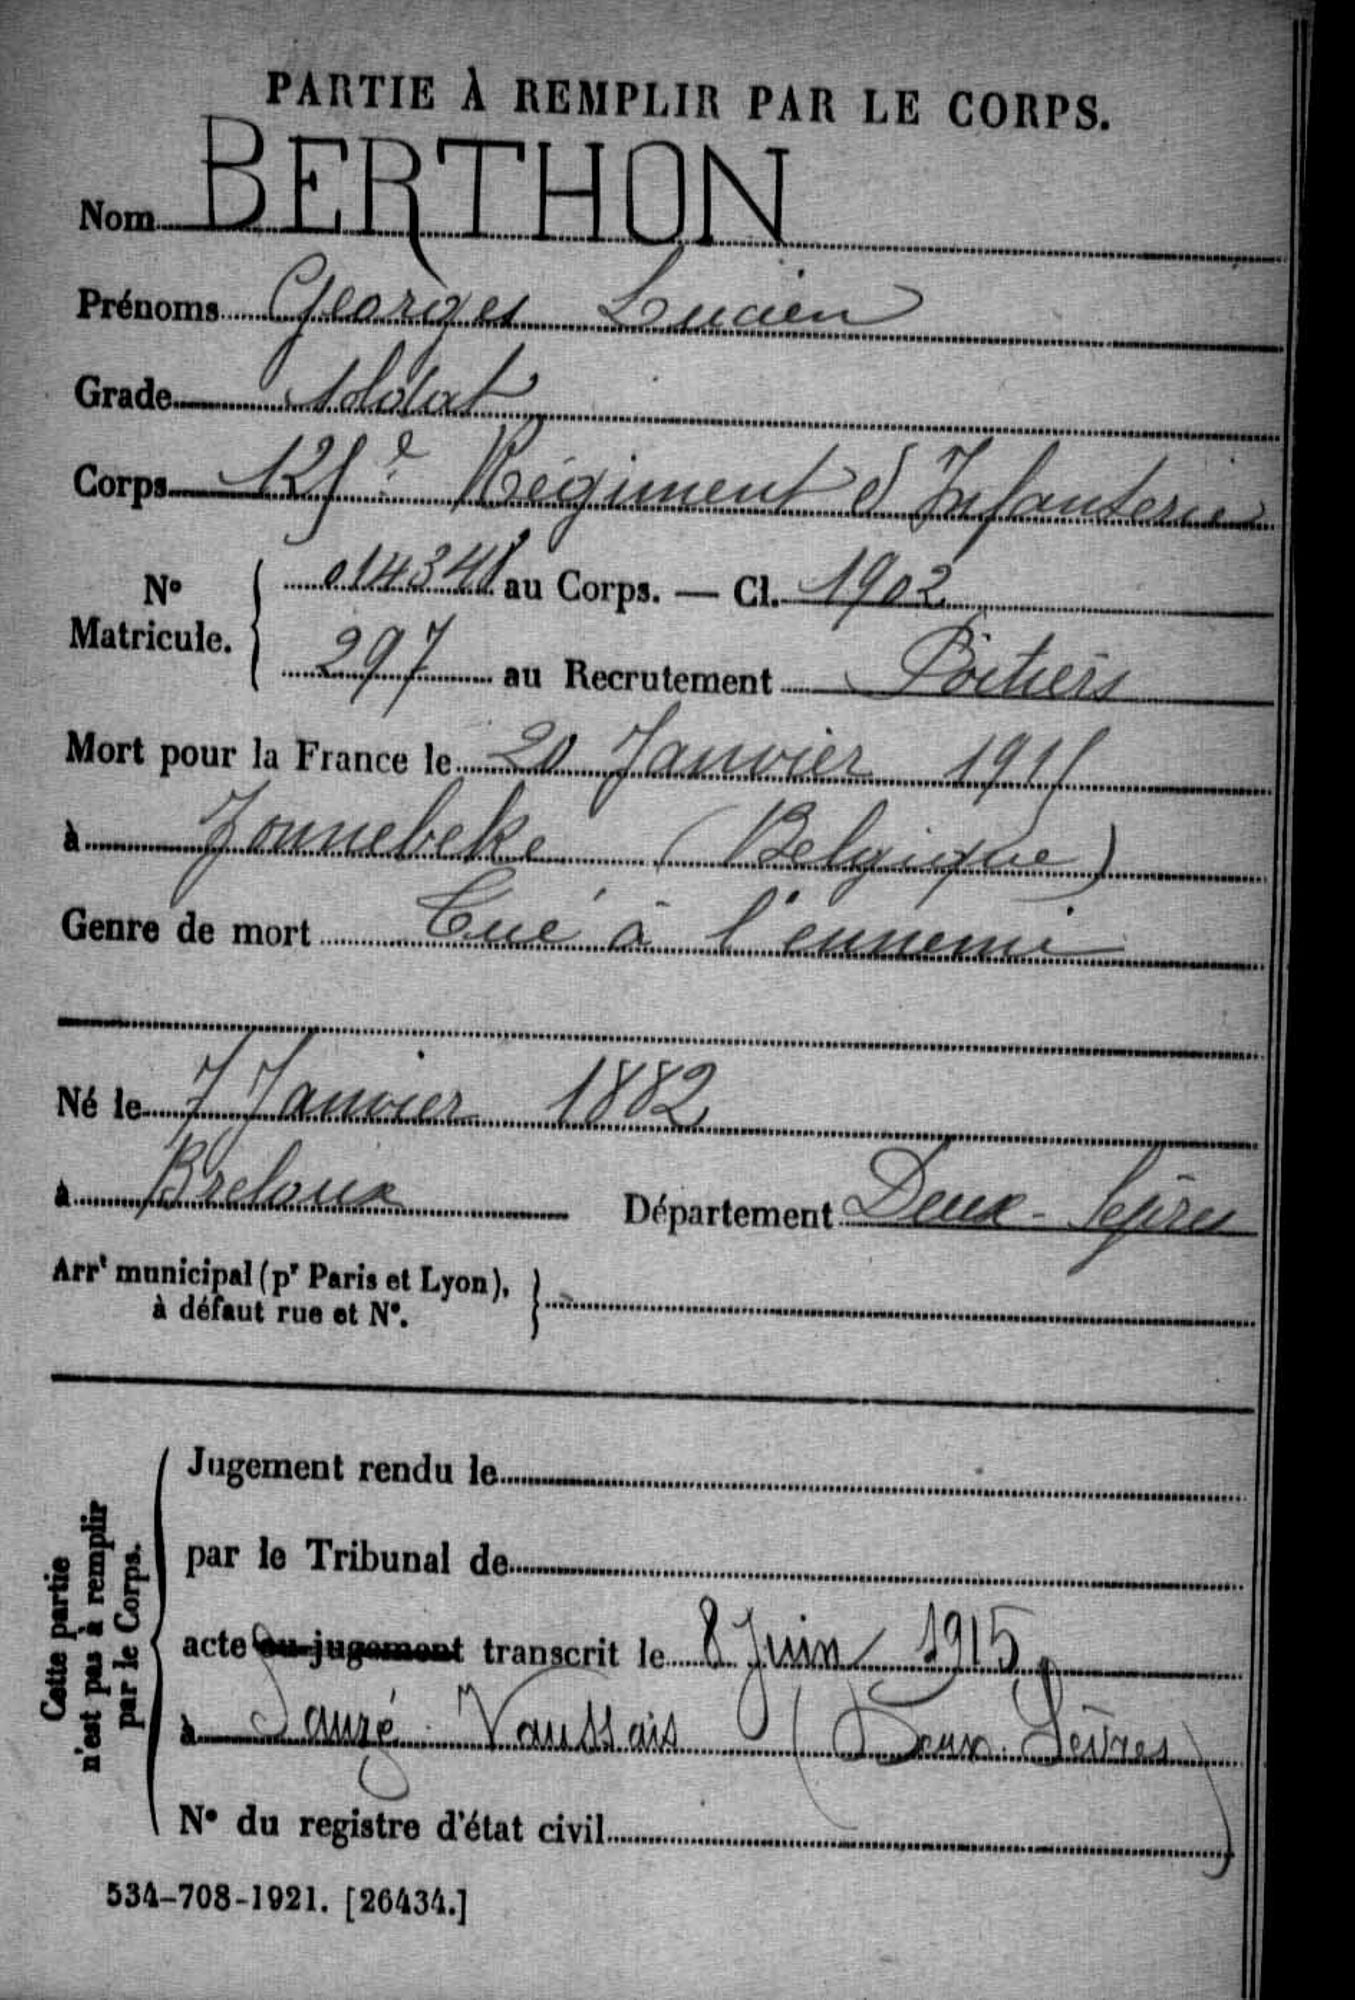 PARTIE À REMPLIR PAR LE CORPS.
Nom BERTHON
Prénoms Georges Lucien
Grade soldat
Corps 125e Régiment d'Infanterie
No Matricule. { 014348 au Corps. — Cl. 1902
297 au Recrutement Poitiers
Mort pour la France le 20 Janvier 1915
à Zonnebeke (Belgique)
Genre de mort Tué à l'ennemi
Né le 7 Janvier 1882
à Breloux Département Deux-Sèvres
Arrt municipal (pr Paris et Lyon), à défaut rue et No. }
Cette partie n'est pas à remplir par le Corps.
Jugement rendu le
par le Tribunal de
acte ou jugement transcrit le 8 Juin 1915
à Sauzé-Vaussais (Deux-Sèvres)
No du registre d'état civil
534-708-1921. [26434.]